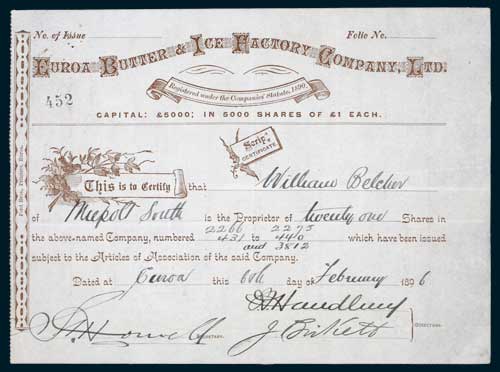 No. of Issue Folio No.
EUROA BUTTER & ICE FACTORY COMPANY, LTD.
Registered under the Companies' Statute, 1890.
452
CAPITAL: £5000; IN 5000 SHARES OF £1 EACH.
Scrip CERTIFICATE.
This is to Certify that William Belcher
of Miepoll South is the Proprietor of twenty one Shares in
2266 2275
the above-named Company, numbered 431 to 440 which have been issued
and 3812
subject to the Articles of Association of the said Company.
Dated at Euroa this 6th day of February 1896
SECRETARY. J. Birkett DIRECTORS.